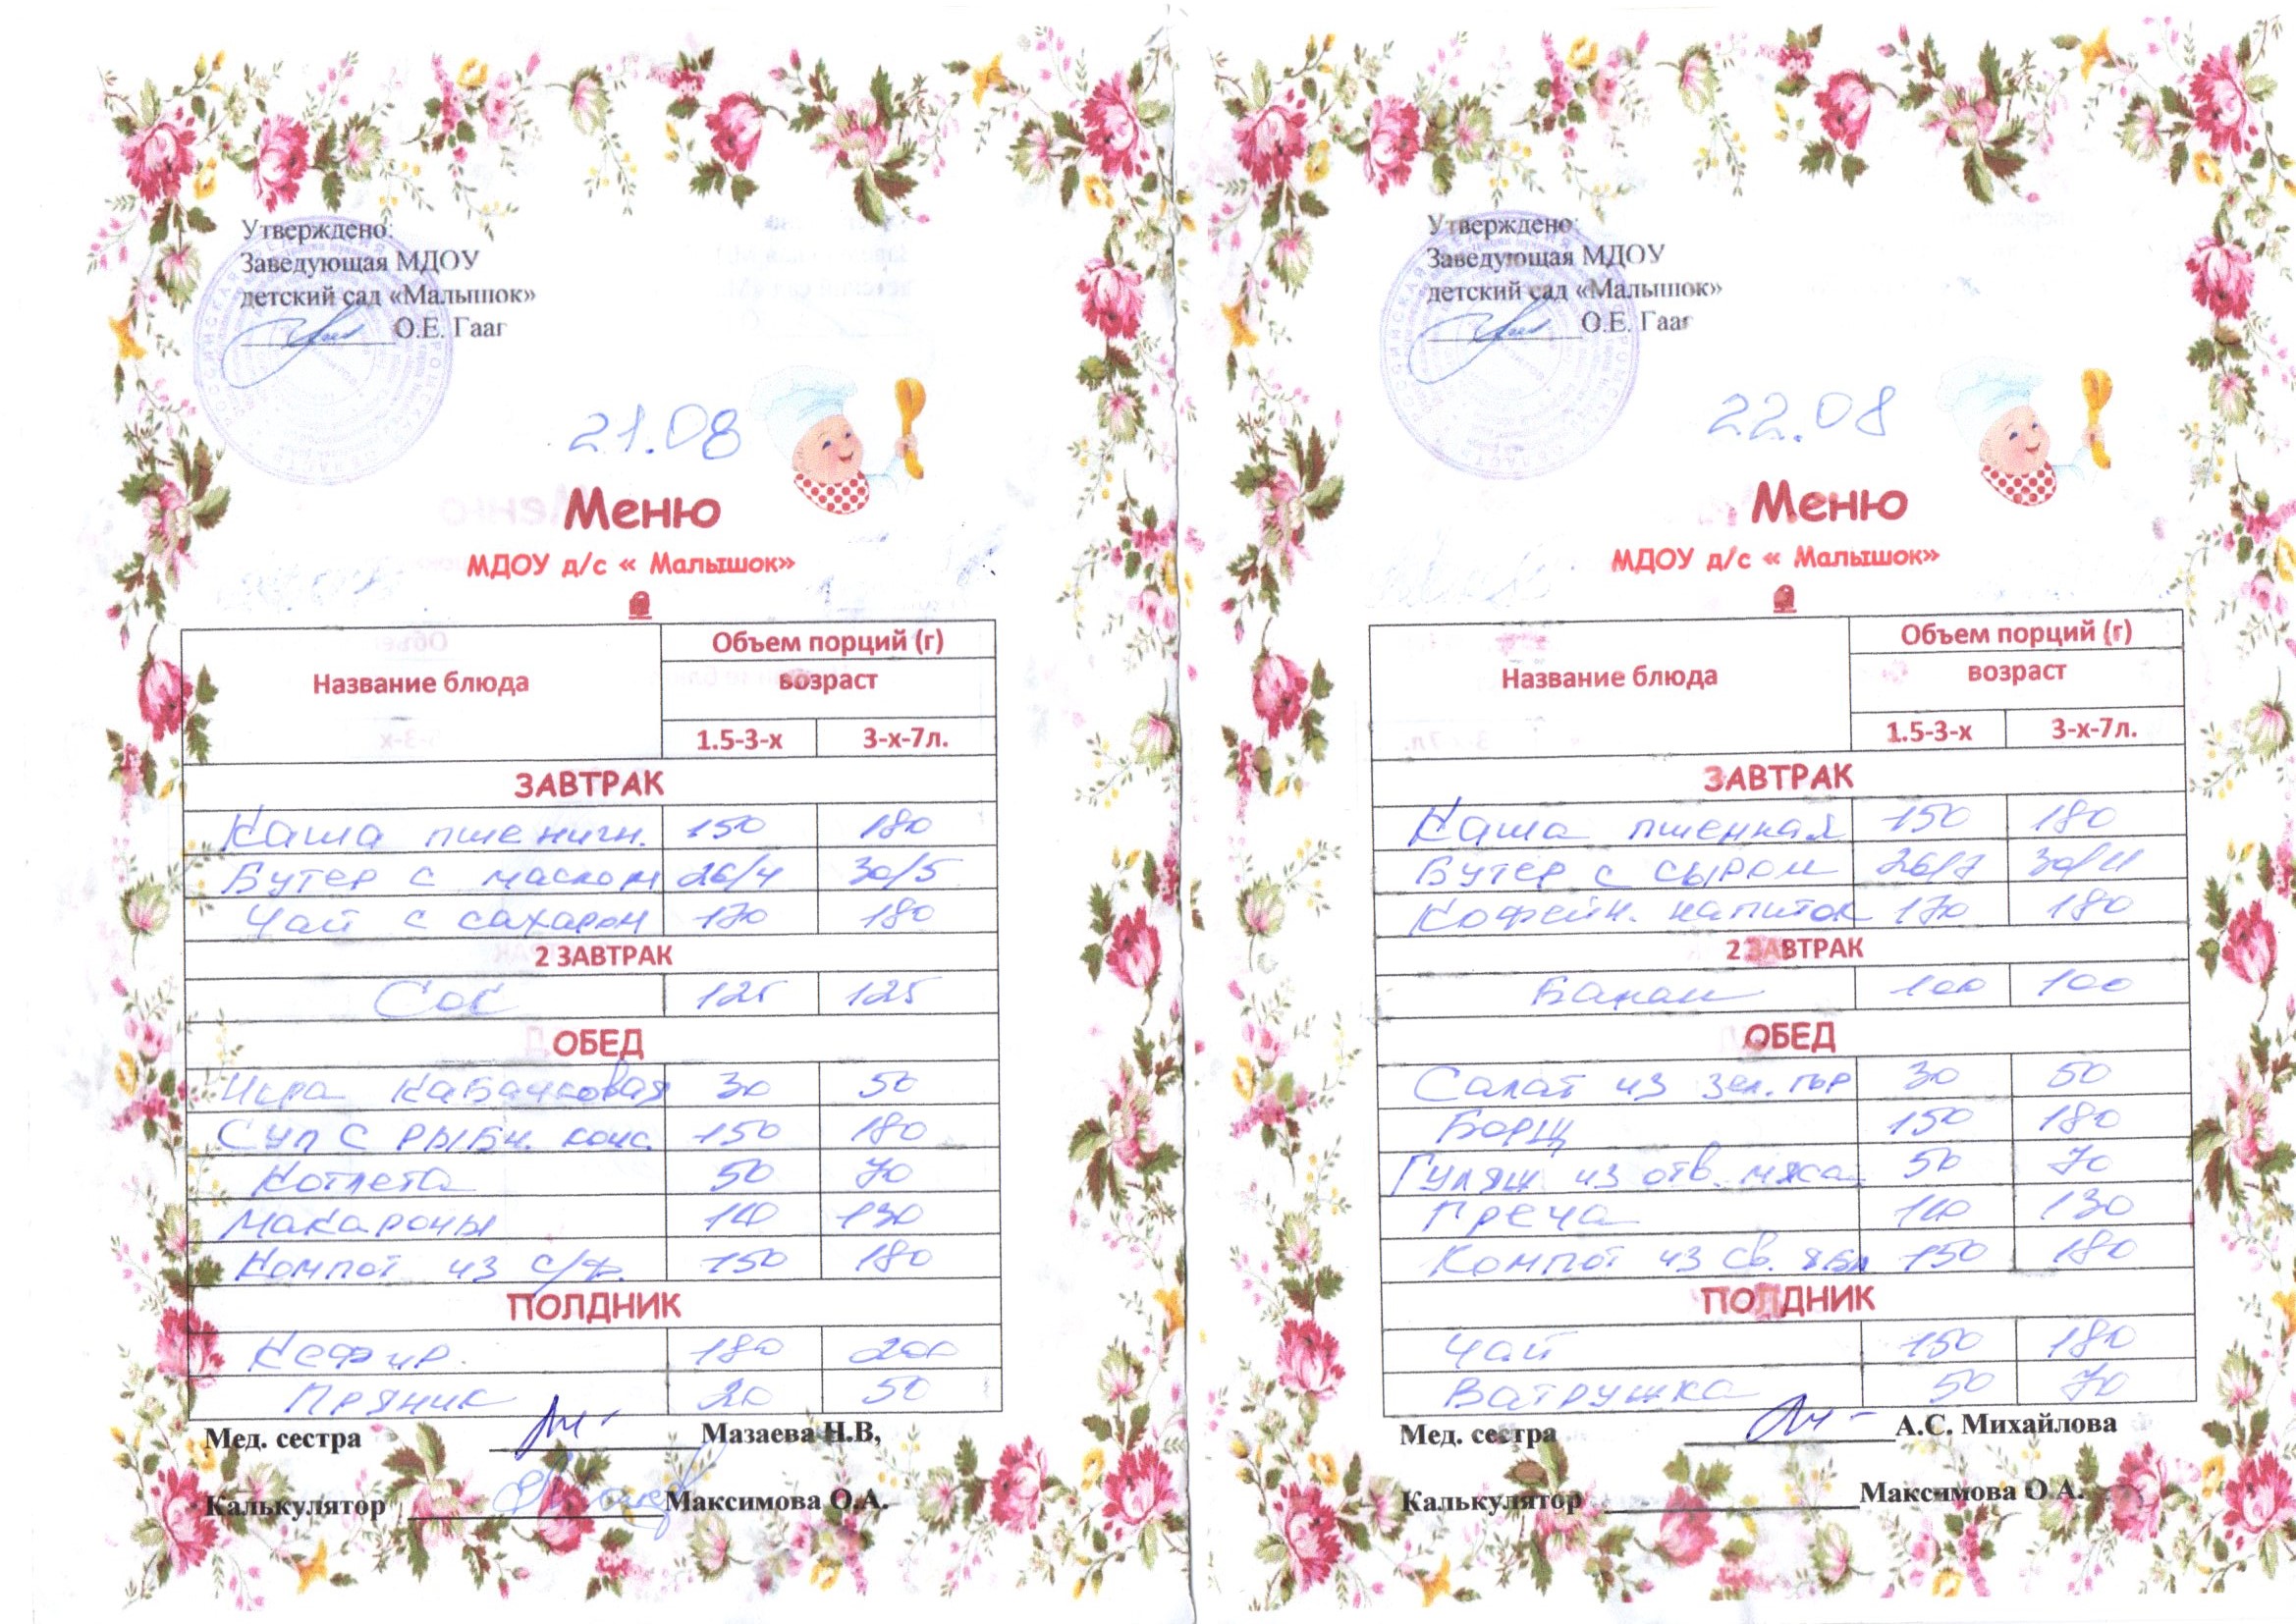 Утверждено:
Заведующая МДОУ
детский сад «Малышок»
О.Е. Гааг
21.08
Меню
МДОУ д/с « Малышок»
Название блюда
Объем порций (г)
возраст
1.5-3-х 3-х-7л.
ЗАВТРАК
Каша пшеничн. 150 180
Бутер с маслом 26/4 30/5
Чай с сахаром 170 180
2 ЗАВТРАК
Сок 125 125
ОБЕД
Икра кабачковая 30 50
Суп с рыбн. конс. 150 180
Котлета 50 70
Макароны 110 130
Компот из с/ф. 150 180
ПОЛДНИК
Кефир 180 200
Пряник 20 50
Мед. сестра Мазаева Н.В,
Калькулятор Максимова О.А.
Утверждено:
Заведующая МДОУ
детский сад «Малышок»
О.Е. Гааг
22.08
Меню
МДОУ д/с « Малышок»
Название блюда
Объем порций (г)
возраст
1.5-3-х 3-х-7л.
ЗАВТРАК
Каша пшенная 150 180
Бутер с сыром 26/7 30/11
Кофейн. напиток 170 180
2 ЗАВТРАК
Банан 100 100
ОБЕД
Салат из зел. гор 30 50
Борщ 150 180
Гуляш из отв. мяса 50 70
Греча 110 130
Компот из св. ябл 150 180
ПОЛДНИК
Чай 150 180
Ватрушка 50 70
Мед. сестра А.С. Михайлова
Калькулятор Максимова О.А.